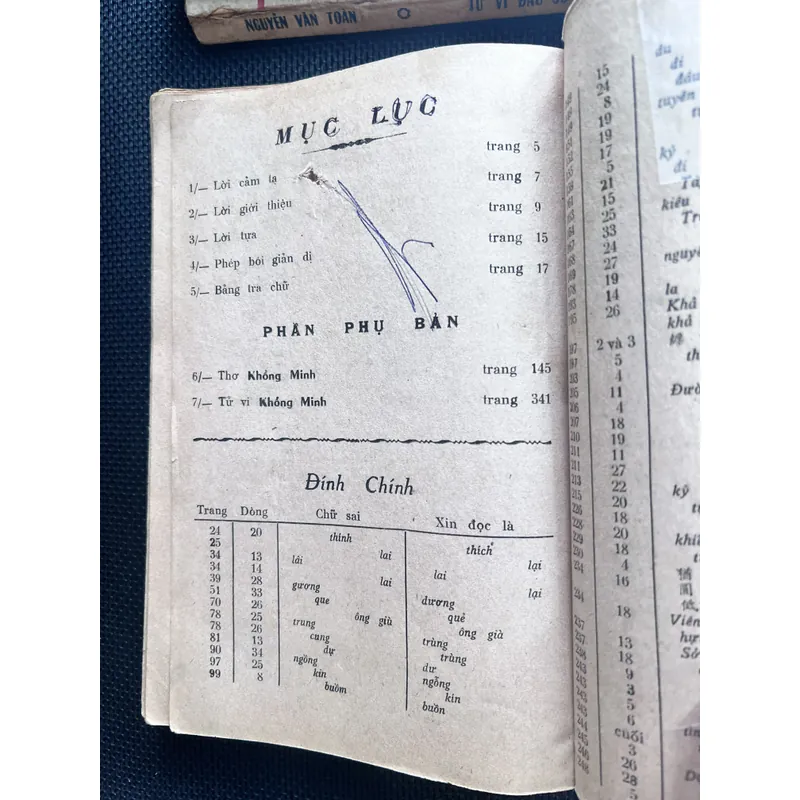 NGUYỄN VĂN TOÀN
TỬ VI ĐẨU
MỤC LỤC
1/— Lời cảm tạ trang 5
2/— Lời giới thiệu trang 7
3/— Lời tựa trang 9
4/— Phép bói giản dị trang 15
5/— Bảng tra chữ trang 17
PHẦN PHỤ BẢN
6/— Thơ Khổng Minh trang 145
7/— Tử vi Khổng Minh trang 341
Đính Chính
Trang Dòng Chữ sai Xin đọc là
24 20 thính thích
25
34 13 lai lại
34 14 lái lai
39 28 lai lại
51 33 gương dương
70 26 que quẻ
78 25 ông giù ông già
78 26 trung trùng
81 13 cung trùng
90 34 dự dư
97 25 ngồng ngỗng
99 8 kin kin
buồm buồn
du
15 di
24 đầu
8 tuyên
19
19
17 kỷ
5 đi
21
15 kiều
25
33
24 nguyệ
27
19 la
14 Khả
26 khả
2 và 3
5
4
11 Đườ
4
18
19
11
27
22 kỹ
20
18
20
18
4
16
18 Viên
13
18
9
3
5
6
cuối
3
26
28
5